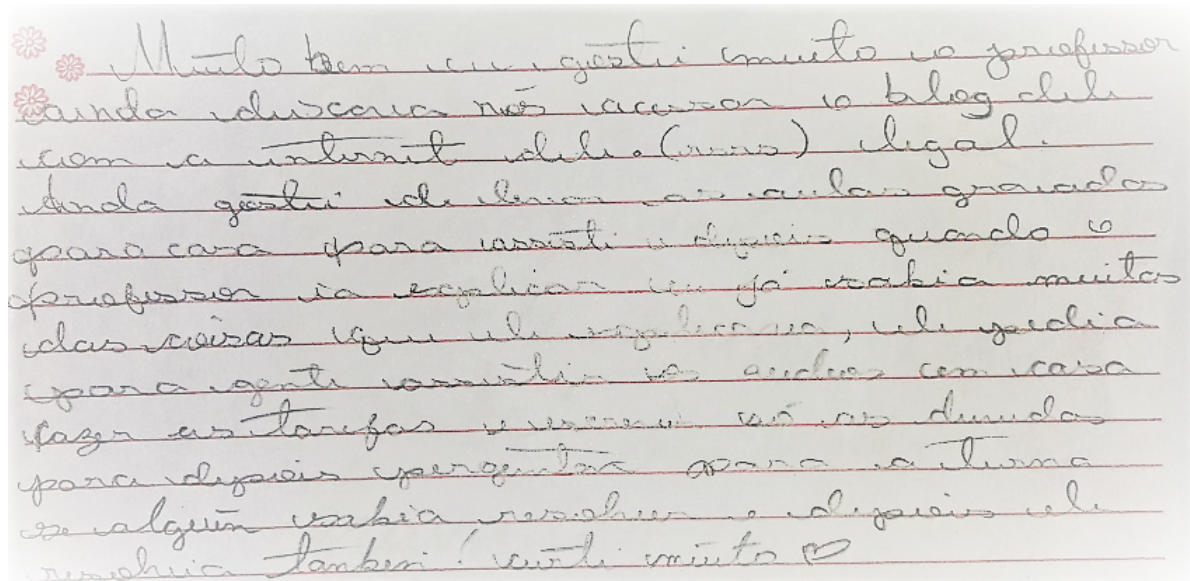 Muito bem eu gostei muito o professor
ainda deixava nós acessar o blog dele
com a internet dele. (risos) legal.
Ainda gostei de levar as aulas gravadas
para casa para assisti e depois quando o
professor ia explicar eu já sabia muitas
das coisas que ele explicava, ele pedia
para gente assistir os audios em casa
fazer as tarefas e escrever só as duvidas
para depois perguntar para a turma
se alguém sabia resolver e depois ele
resolvia também! curti muito